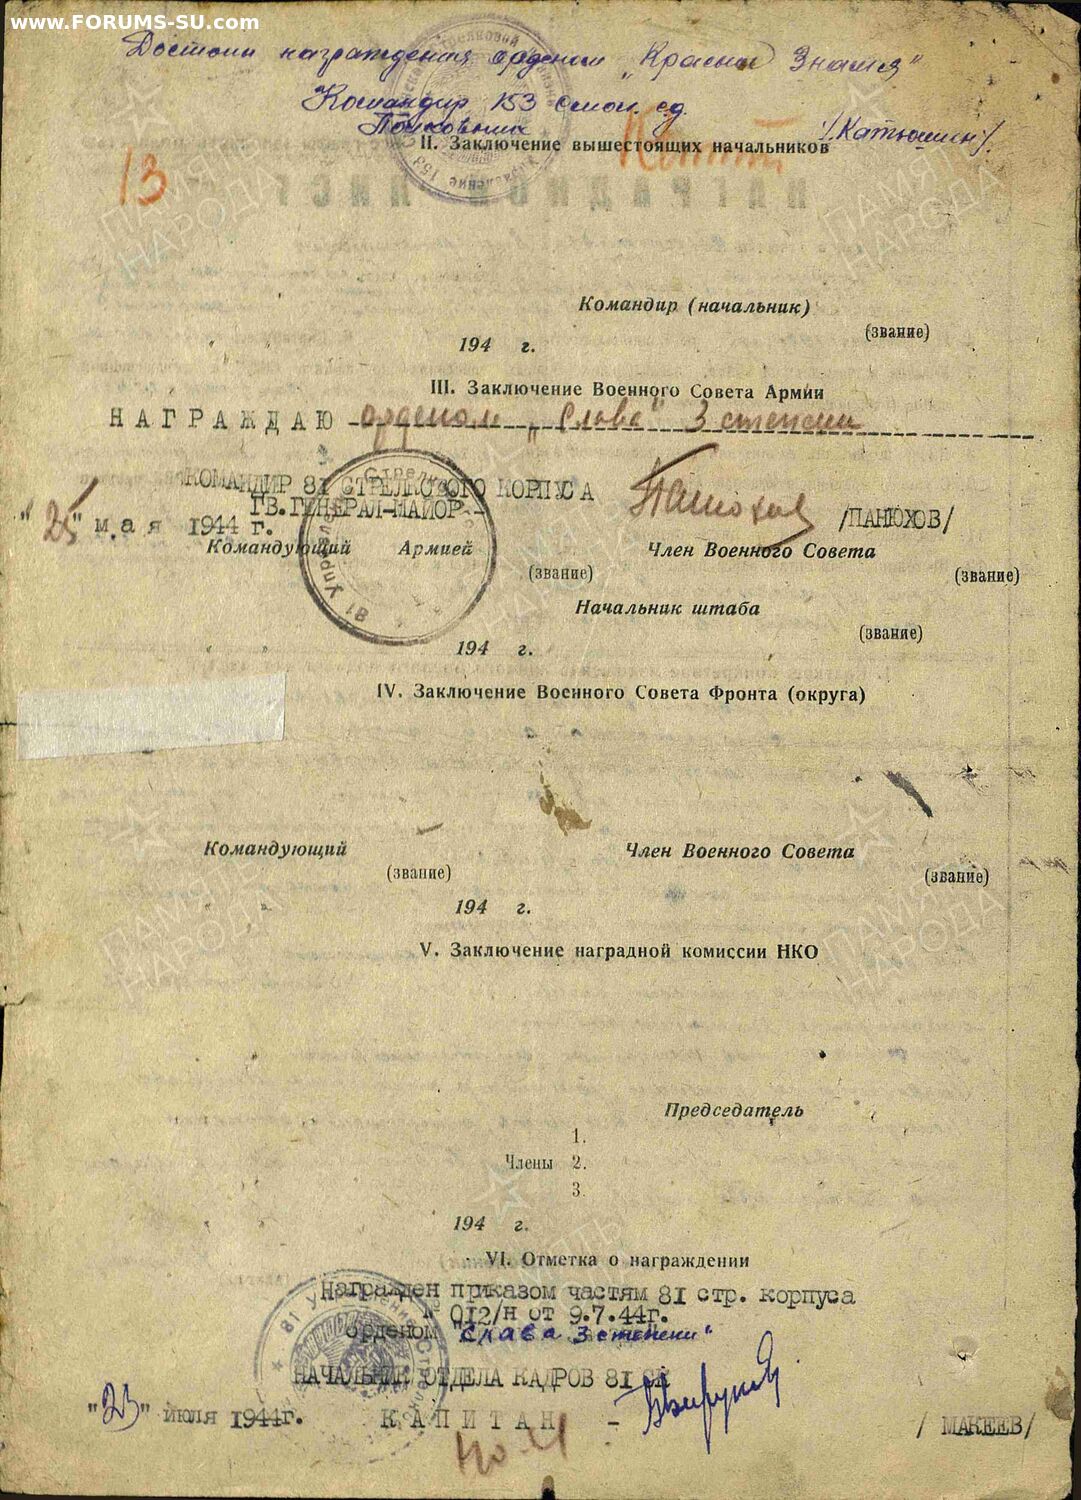 www.FORUMS-SU.com
Достоин награждения орденом „Красное Знамя"
Командир 153 смол. сд.
Полковник /Катюшин/.
II. Заключение вышестоящих начальников
13
ПАМЯТЬ НАРОДА
ПАМЯТЬ НАРОДА
Командир (начальник)
(звание)
" " 194 г.
III. Заключение Военного Совета Армии
НАГРАЖДАЮ орденом „Слава" 3 степени
КОМАНДИР 81 СТРЕЛКОВОГО КОРПУСА
ГВ.ГЕНЕРАЛ-МАЙОР - /ПАНЮХОВ/
"25" мая 1944 г.
Командующий Армией Член Военного Совета
(звание) (звание)
Начальник штаба
(звание)
" " 194 г.
IV. Заключение Военного Совета Фронта (округа)
Командующий Член Военного Совета
(звание) (звание)
ПАМЯТЬ НАРОДА
ПАМЯТЬ НАРОДА
" " 194 г.
V. Заключение наградной комиссии НКО
Председатель
1.
Члены 2.
3.
194 г.
VI. Отметка о награждении
Награжден приказом частям 81 стр. корпуса
№ 012/н от 9.7.44г.
орденом "Слава 3 степени"
НАЧАЛЬНИК ОТДЕЛА КАДРОВ 81 СК
"23" июля 1944г. КАПИТАН - /МАКЕЕВ/